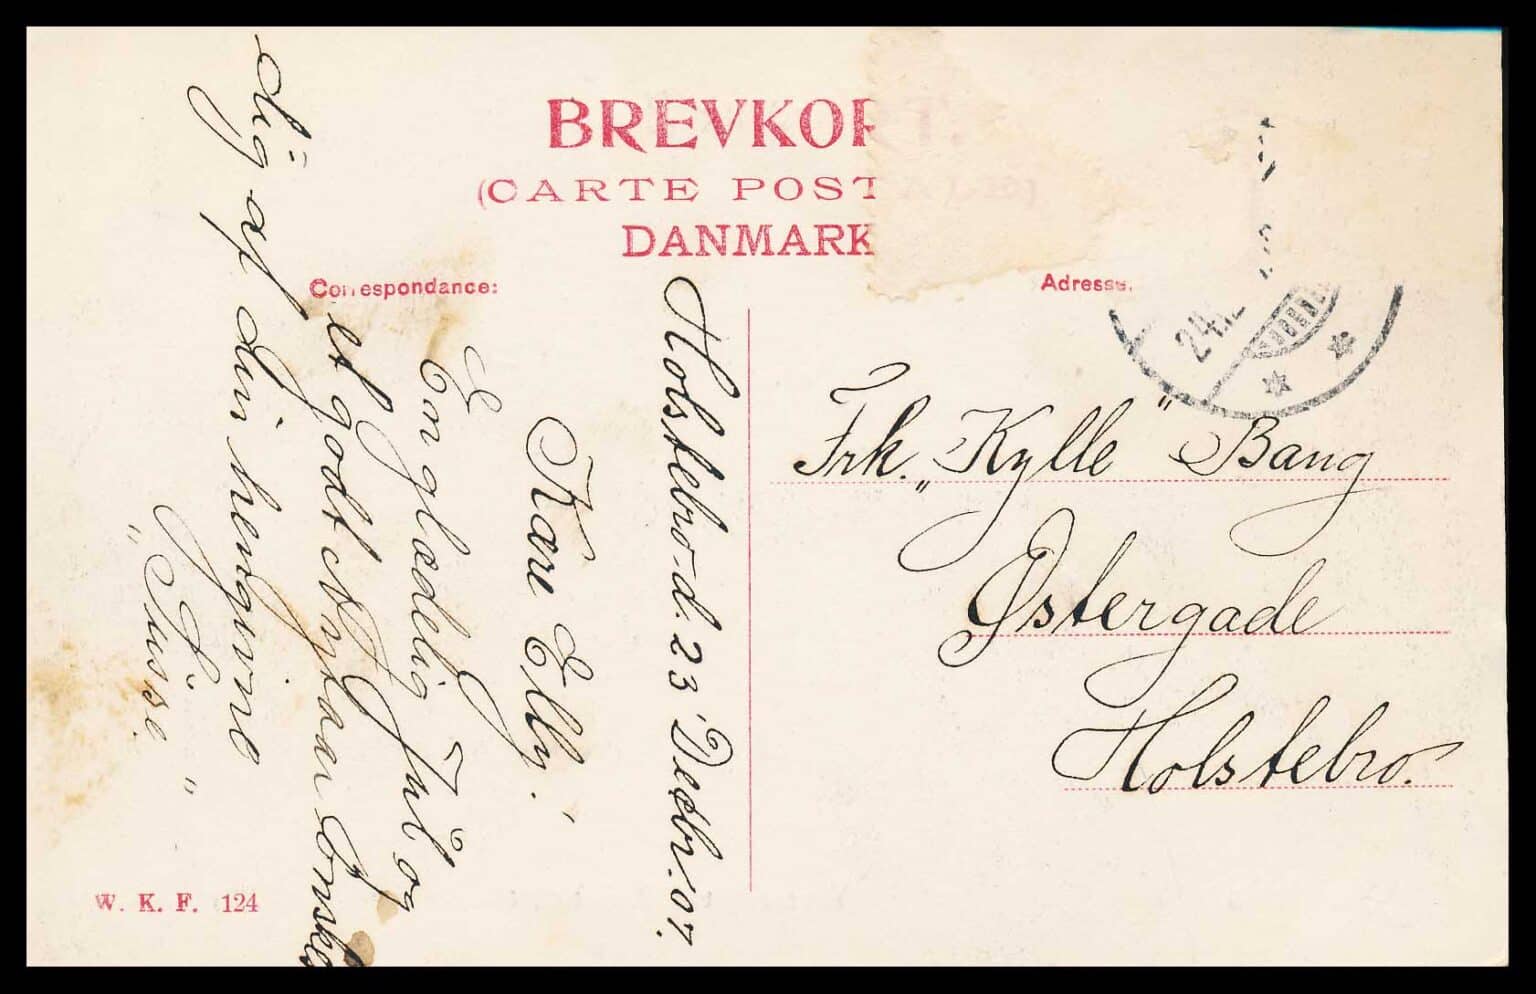 BREVKORT.
(CARTE POST
DANMARK
Correspondance:
Adresse.
24.12
Holstebro d. 23 Decbr. 07.
Kære Elly.
En glædelig Jul og
et godt Nytaar ønskes
dig af din hengivne
"Susse"
Frk. „Kylle" Bang
Østergade
Holstebro.
W. K. F. 124